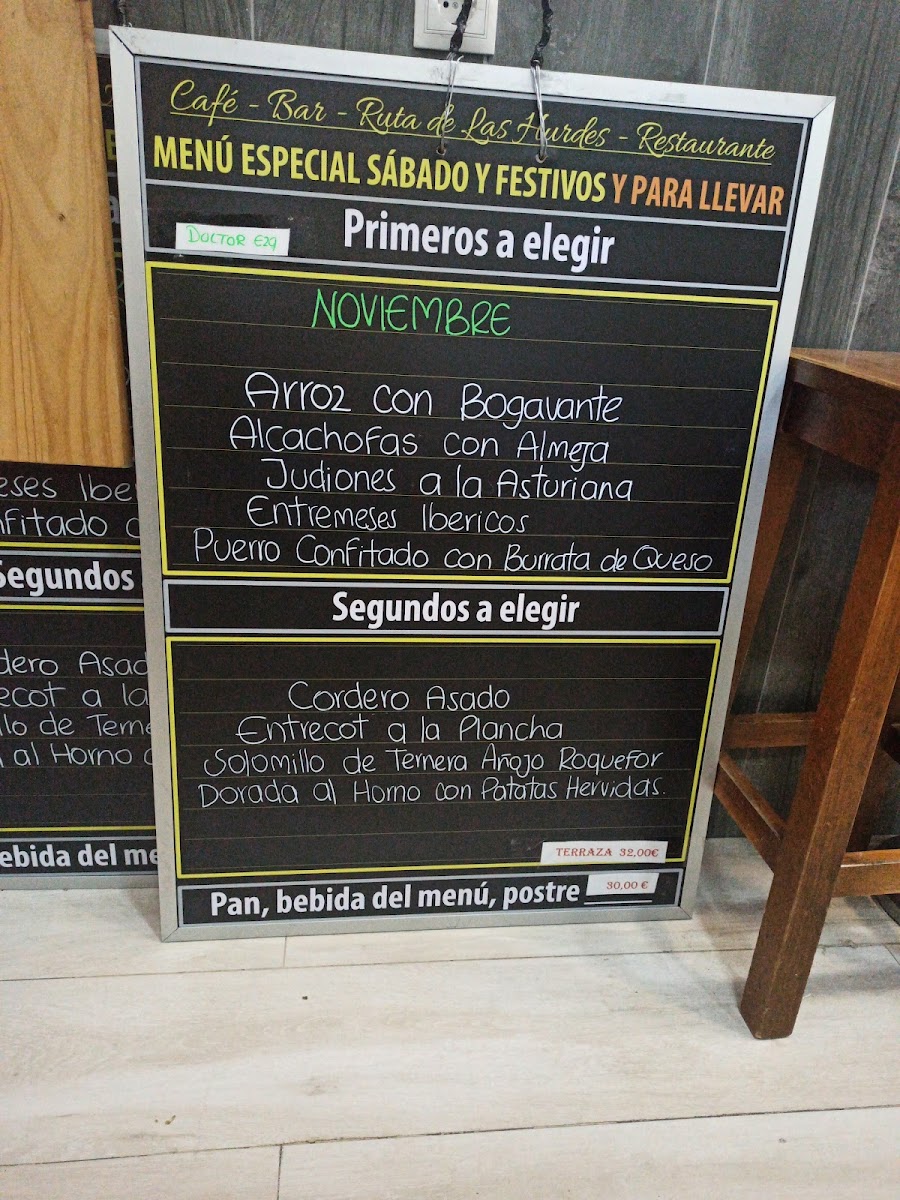 Café - Bar - Ruta de Las Hurdes - Restaurante
MENÚ ESPECIAL SÁBADO Y FESTIVOS Y PARA LLEVAR
Primeros a elegir
NOVIEMBRE
Arroz con Bogavante
Alcachofas con Almeja
Judiones a la Asturiana
Entremeses Ibericos
Puerro Confitado con Burrata de Queso
Segundos a elegir
Cordero Asado
Entrecot a la Plancha
Solomillo de Ternera Añojo Roquefor
Dorada al Horno con Patatas Hervidas.
TERRAZA 32,00€
Pan, bebida del menú, postre 30,00 €
eses Iber
nfitado c
Segundos
dero Asad
ecot a la
llo de Terne
al Horno c
ebida del me